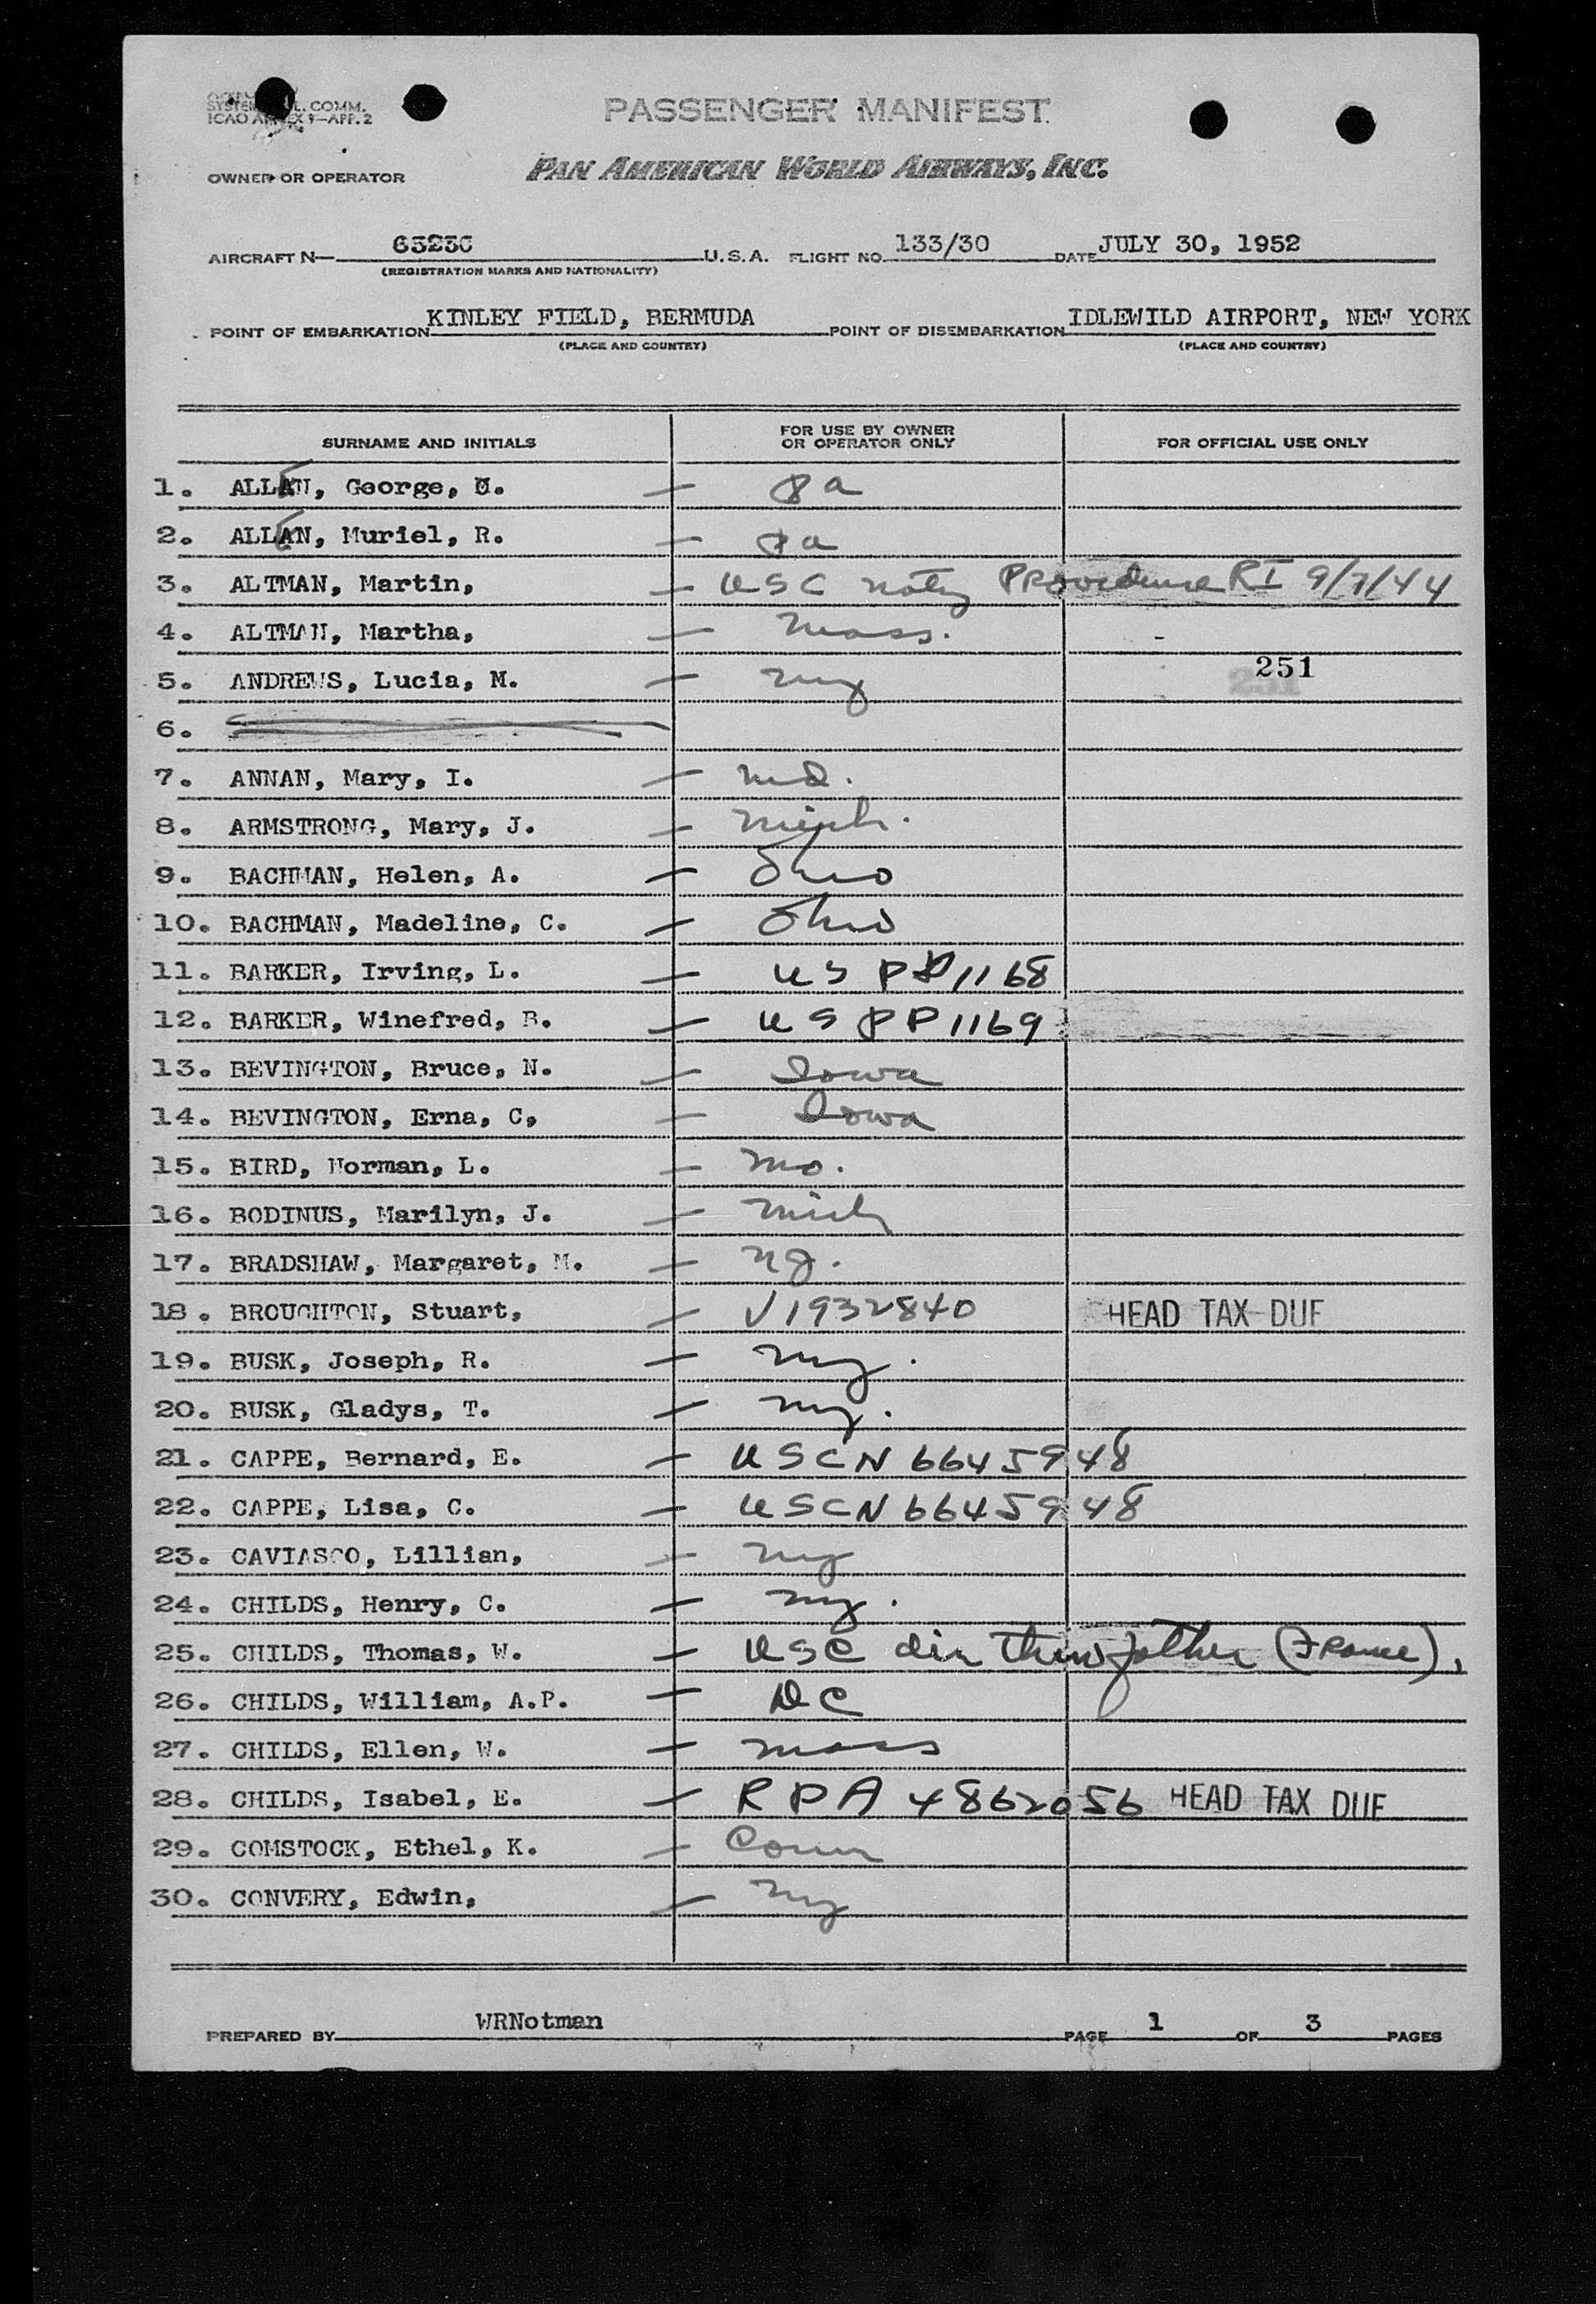 SYSTEM L. COMM.
ICAO ANNEX 9—APP. 2
PASSENGER MANIFEST
OWNER OR OPERATOR
PAN AMERICAN WORLD AIRWAYS, INC.
AIRCRAFT N— U.S.A. FLIGHT NO. 133/30 DATE JULY 30, 1952
(REGISTRATION MARKS AND NATIONALITY)
POINT OF EMBARKATION KINLEY FIELD, BERMUDA POINT OF DISEMBARKATION IDLEWILD AIRPORT, NEW YORK
(PLACE AND COUNTRY) (PLACE AND COUNTRY)
SURNAME AND INITIALS FOR USE BY OWNER OR OPERATOR ONLY FOR OFFICIAL USE ONLY
1. ALLEN, George, — Pa
2. ALLEN, Muriel, R. — Pa
3. ALTMAN, Martin, — USC Natz Providence RI 9/7/44
4. ALTMAN, Martha, — Mass.
5. ANDREWS, Lucia, M. — NY 251
6.
7. ANNAN, Mary, I. — Md.
8. ARMSTRONG, Mary, J. — Mich.
9. BACHMAN, Helen, A. — Ohio
10. BACHMAN, Madeline, C. — Ohio
11. BARKER, Irving, L. — US PP 1168
12. BARKER, Winefred, B. — US PP 1169
13. BEVINGTON, Bruce, N. — Iowa
14. BEVINGTON, Erna, C, — Iowa
15. BIRD, Norman, L. — Mo.
16. BODINUS, Marilyn, J. — Mich
17. BRADSHAW, Margaret, M. — NJ.
18. BROUGHTON, Stuart, — V1932840 HEAD TAX DUE
19. BUSK, Joseph, R. — NY.
20. BUSK, Gladys, T. — NY.
21. CAPPE, Bernard, E. — USCN 6645948
22. CAPPE, Lisa, C. — USCN 6645948
23. CAVIASCO, Lillian, — NY
24. CHILDS, Henry, C. — NY.
25. CHILDS, Thomas, W. — USC div thru father (France).
26. CHILDS, William, A.P. — DC
27. CHILDS, Ellen, W. — Mass
28. CHILDS, Isabel, E. — RPA 4862056 HEAD TAX DUE
29. COMSTOCK, Ethel, K. — Conn
30. CONVERY, Edwin, — NY
PREPARED BY WRNotman PAGE 1 OF 3 PAGES